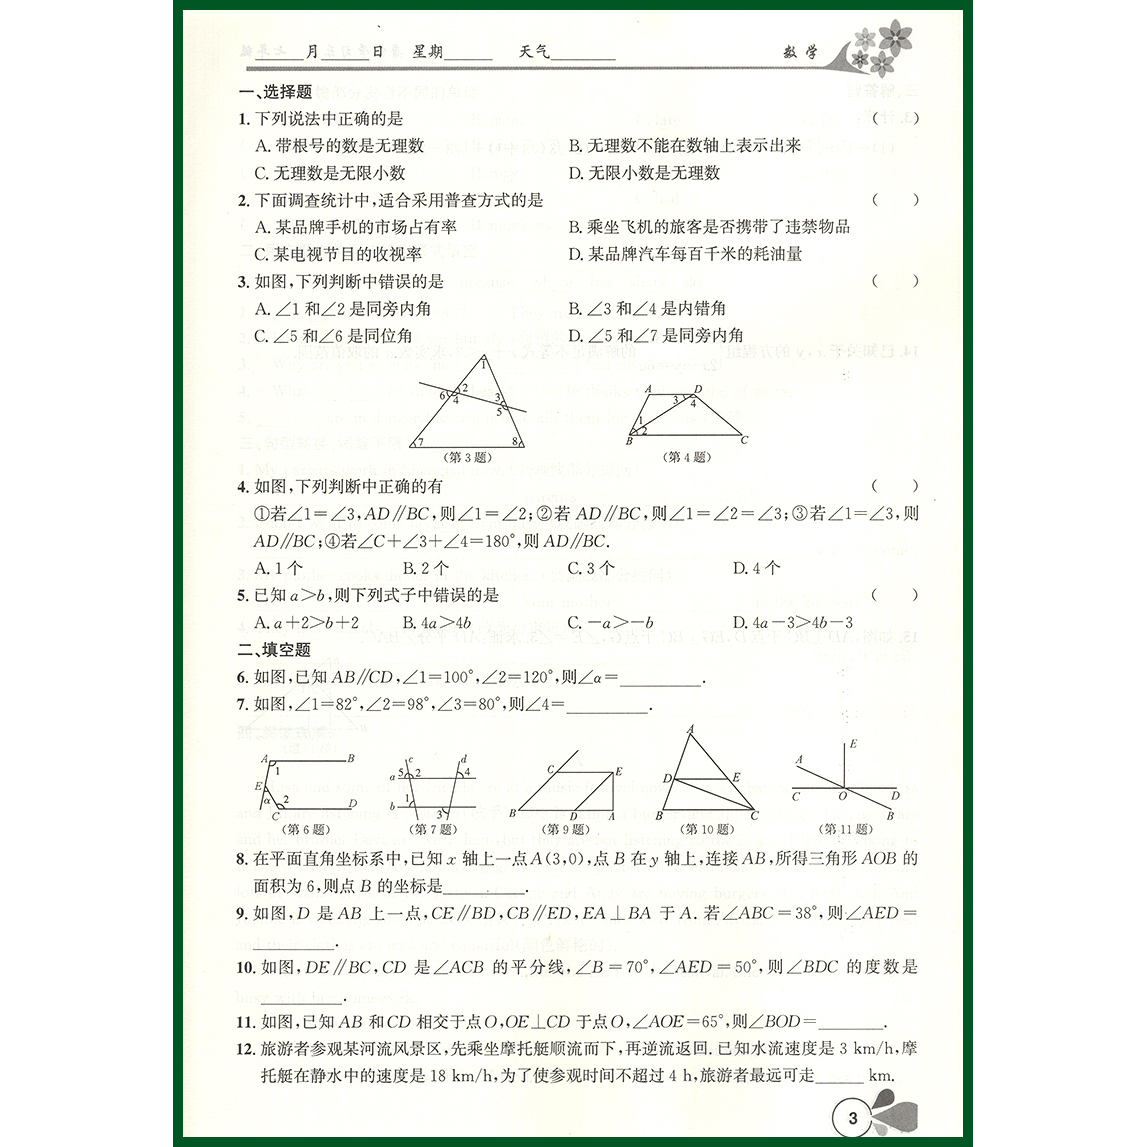 ______月______日 星期______ 天气________ 数学
一、选择题
1. 下列说法中正确的是 ( )
A. 带根号的数是无理数 B. 无理数不能在数轴上表示出来
C. 无理数是无限小数 D. 无限小数是无理数
2. 下面调查统计中,适合采用普查方式的是 ( )
A. 某品牌手机的市场占有率 B. 乘坐飞机的旅客是否携带了违禁物品
C. 某电视节目的收视率 D. 某品牌汽车每百千米的耗油量
3. 如图,下列判断中错误的是 ( )
A. ∠1和∠2是同旁内角 B. ∠3和∠4是内错角
C. ∠5和∠6是同位角 D. ∠5和∠7是同旁内角
1 2 6 4 3 5 7 8
A D 3 4 1 2 B C
(第3题) (第4题)
4. 如图,下列判断中正确的有 ( )
①若∠1=∠3,AD∥BC,则∠1=∠2;②若AD∥BC,则∠1=∠2=∠3;③若∠1=∠3,则
AD∥BC;④若∠C+∠3+∠4=180°,则AD∥BC.
A. 1个 B. 2个 C. 3个 D. 4个
5. 已知a>b,则下列式子中错误的是 ( )
A. a+2>b+2 B. 4a>4b C. -a>-b D. 4a-3>4b-3
二、填空题
6. 如图,已知AB∥CD,∠1=100°,∠2=120°,则∠α=__________.
7. 如图,∠1=82°,∠2=98°,∠3=80°,则∠4=__________.
A B 1 E α 2 C D
c d a 5 2 4 b 1 3
C E B D A
A D E B C
E A C O D B
(第6题) (第7题) (第9题) (第10题) (第11题)
8. 在平面直角坐标系中,已知x轴上一点A(3,0),点B在y轴上,连接AB,所得三角形AOB的
面积为6,则点B的坐标是__________.
9. 如图,D是AB上一点,CE∥BD,CB∥ED,EA⊥BA于A.若∠ABC=38°,则∠AED=
__________.
10. 如图,DE∥BC,CD是∠ACB的平分线,∠B=70°,∠AED=50°,则∠BDC的度数是
__________.
11. 如图,已知AB和CD相交于点O,OE⊥CD于点O,∠AOE=65°,则∠BOD=________.
12. 旅游者参观某河流风景区,先乘坐摩托艇顺流而下,再逆流返回.已知水流速度是3 km/h,摩
托艇在静水中的速度是18 km/h,为了使参观时间不超过4 h,旅游者最远可走______km.
3